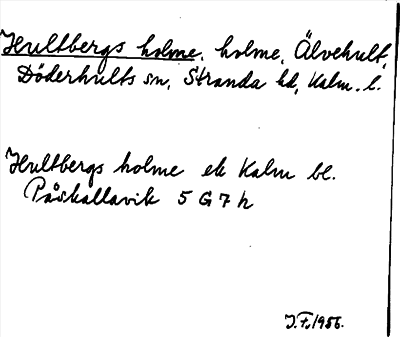 Hultbergs holme, holme, Älvehult,
Döderhults sn, Stranda hd, Kalm. l.
Hultbergs holme ek Kalm bl.
Påskallavik 5 G 7 h
J.F. 1956.